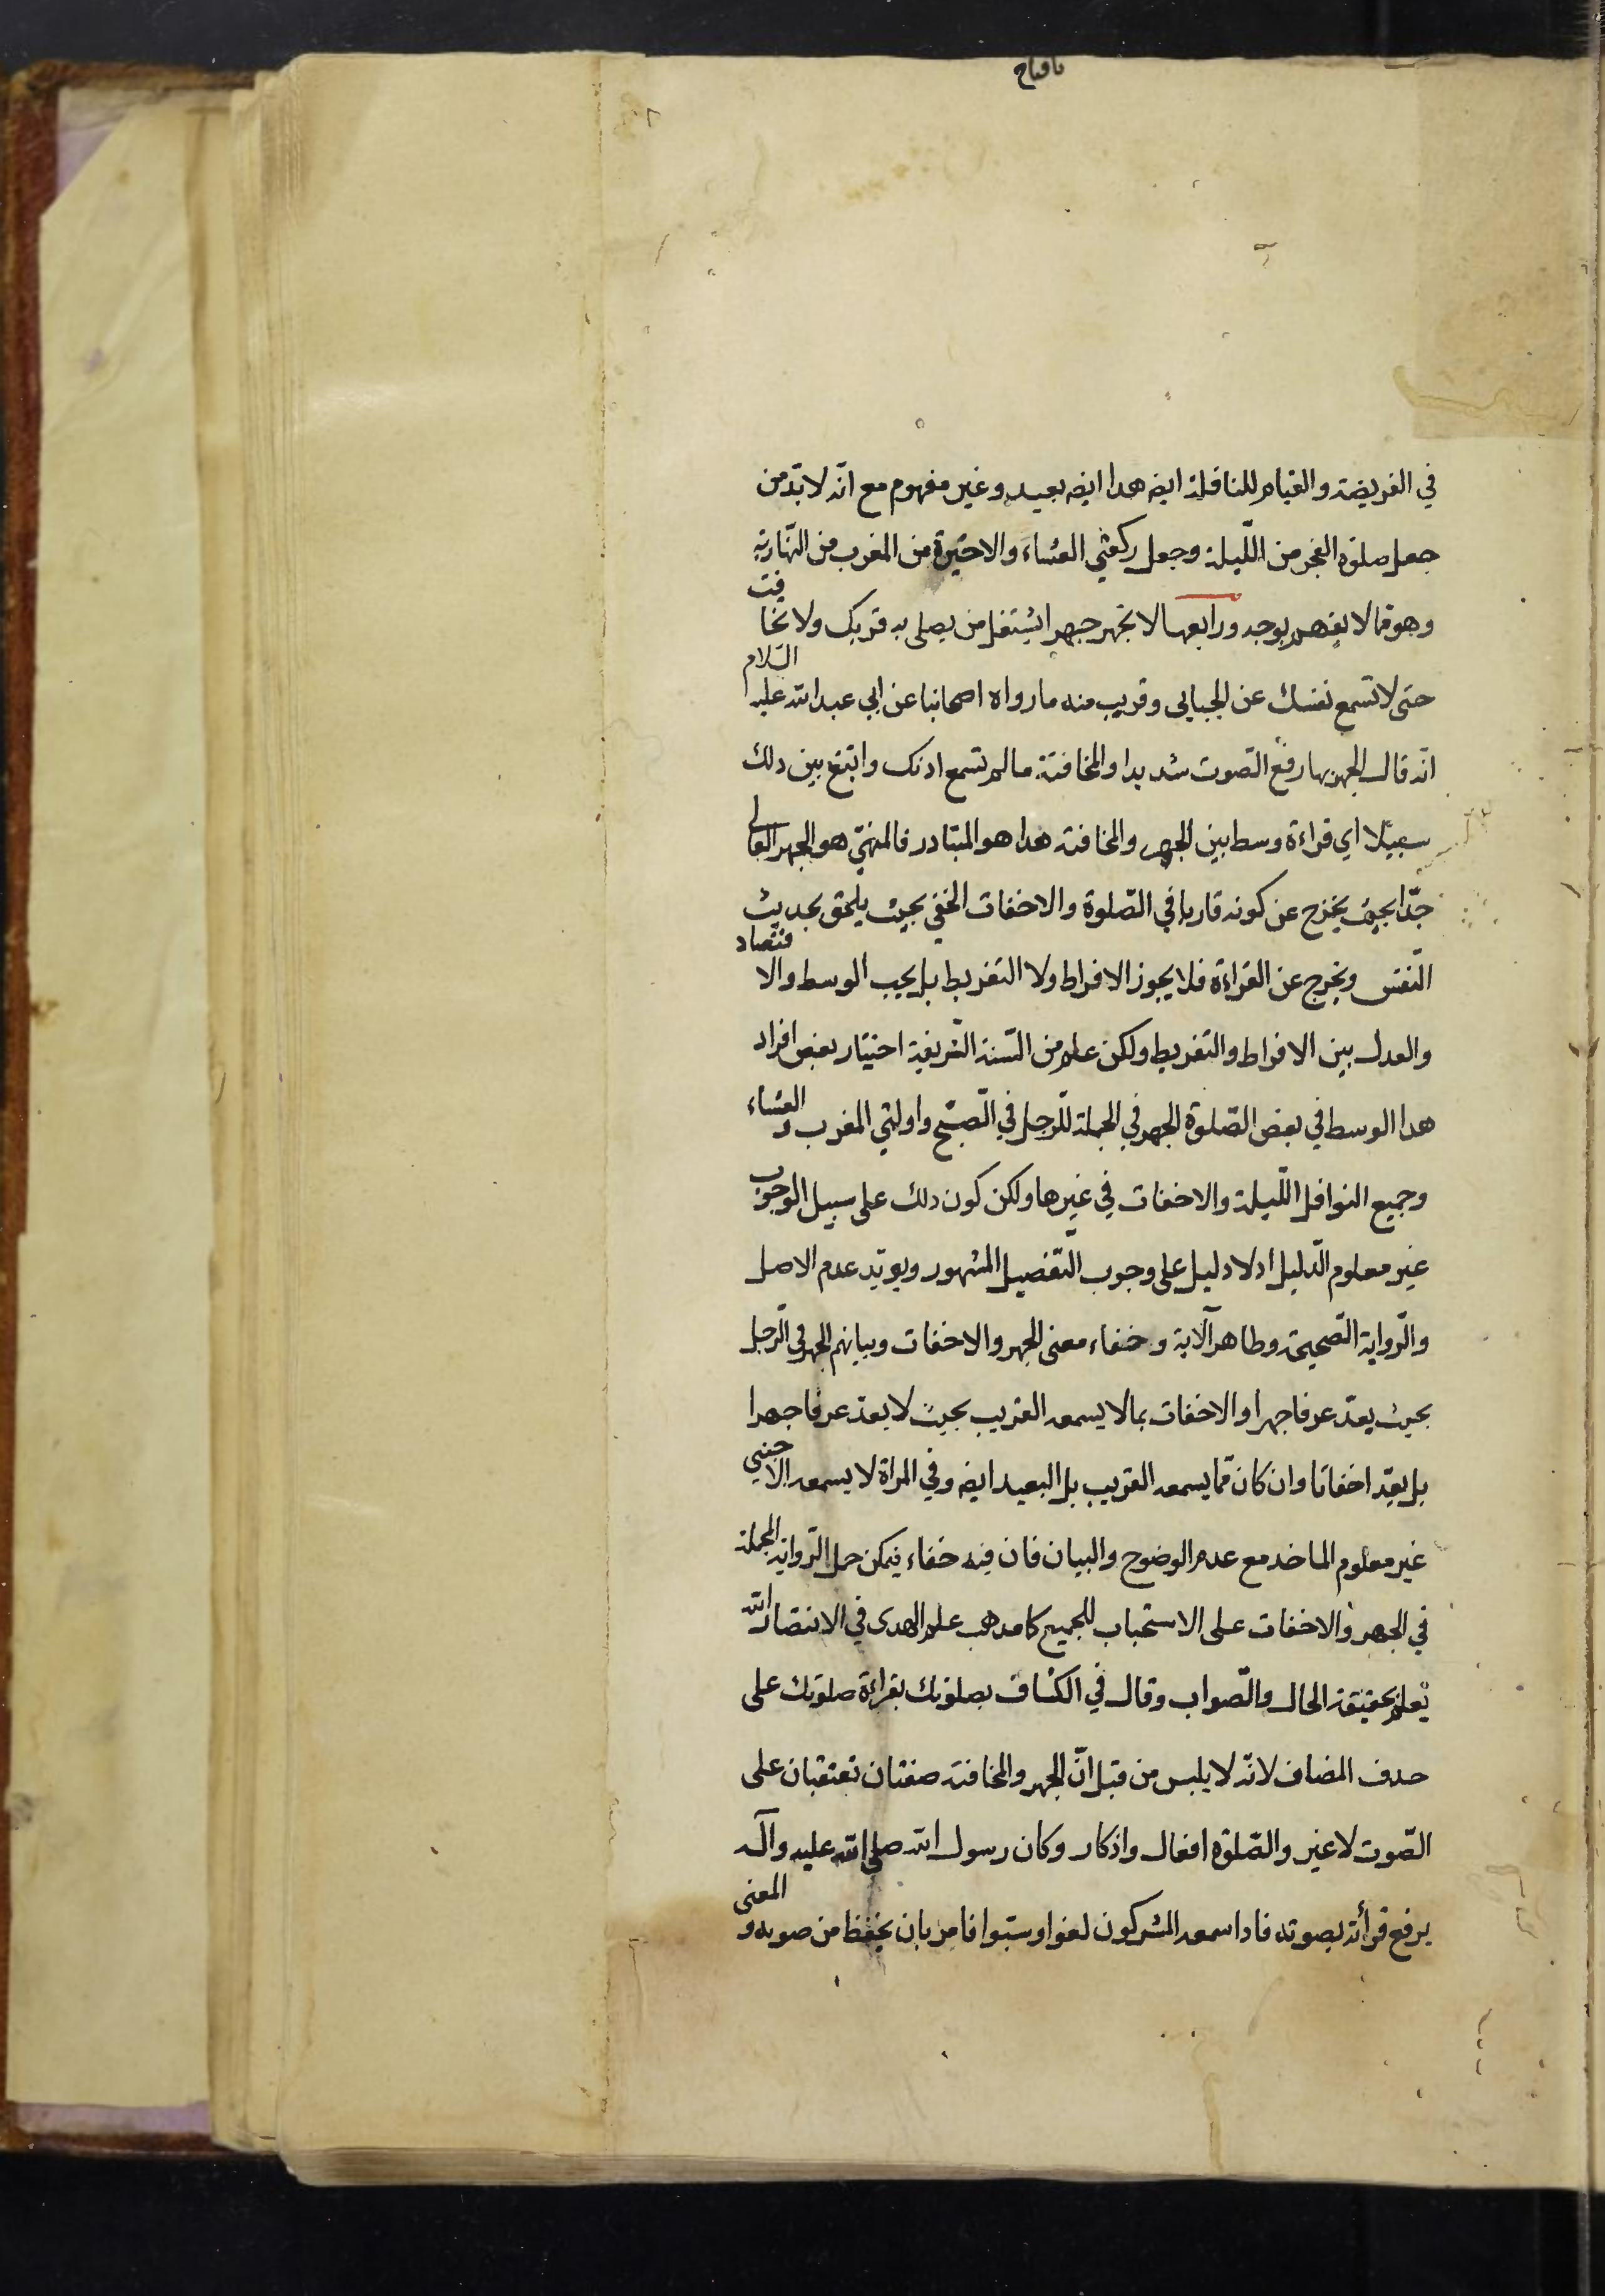 في الفريضة والقيام للنافلة ايضه هذا ايضه بعيد وغير مفهوم مع انّه لابدّ من
جعل صلوة الفجر من اللّيلة وجعل ركعتي العشاء والاخيرة من المغرب من النّهاريّة
وهو ممّا لا يفهم بوجه ورابعها لا تجهر جهرا يشتغل من يصلي به قربك ولا تخافت
حتى لا تسمع نفسك عن الجبايى وقريب منه ما رواه اصحابنا عن ابي عبد الله عليه السّلام
انّه قال الجهر بها رفع الصّوت شديدا والمخافتة ما لم تسمع اذنك وابتغ بين ذلك
سبيلا اي قراءة وسط بين الجهر والمخافتة هذا هو المتبادر فالمنهيّ هو الجهر العالى
جدّا بحيث يخرج عن كونه قاريا في الصّلوة والاخفات الخفي بحيث يلحق بحديث
النّفس ويخرج عن القراءة فلا يجوز الافراط ولا التفريط بل يجب الوسط والاقتصاد
والعدل بين الافراط والتفريط ولكن علم من السّنة الشّريفة اختيار بعض افراد
هذا الوسط في بعض الصّلوة الجهر في الجملة للرّجل في الصّبح واولتي المغرب والعشاء
وجميع النوافل اللّيلة والاخفات في غيرها ولكن كون ذلك على سبيل الوجوب
غير معلوم الدّليل اذ لا دليل على وجوب التّفصيل المشهور ويؤيّد عدم الاصل
والرّواية الصّحيحة وظاهر الآية وخفاء معنى الجهر والاخفات وبيانهم الجهر في الرّجل
بحيث يعدّ عرفا جهرا والاخفات بما لا يسمعه القريب بحيث لا يعدّ عرفا جهرا
بل يعدّ اخفاتا وان كان ممّا يسمعه القريب بل البعيد ايضه وفي المراة لا يسمعه الاجنبي
غير معلوم الماخذ مع عدم الوضوح والبيان فان فيه خفاء فيمكن حمل الرّواية المجملة
في الجهر والاخفات على الاستحباب للجميع كما مذهب علم الهدى في الانتصار الله
يعلم بحقيقة الحال والصّواب وقال في الكشاف بصلوتك بقراءة صلوتك على
حذف المضاف لانّه لا يلبس من قبل انّ الجهر والمخافتة صفتان تعتقبان على
الصّوت لا غير والصّلوة افعال واذكار وكان رسول الله صلى الله عليه وآله
يرفع قرأته بصوته فاذا سمعه المشركون لغوا وسبّوا فامر بان يخفظ من صوته والمعنى